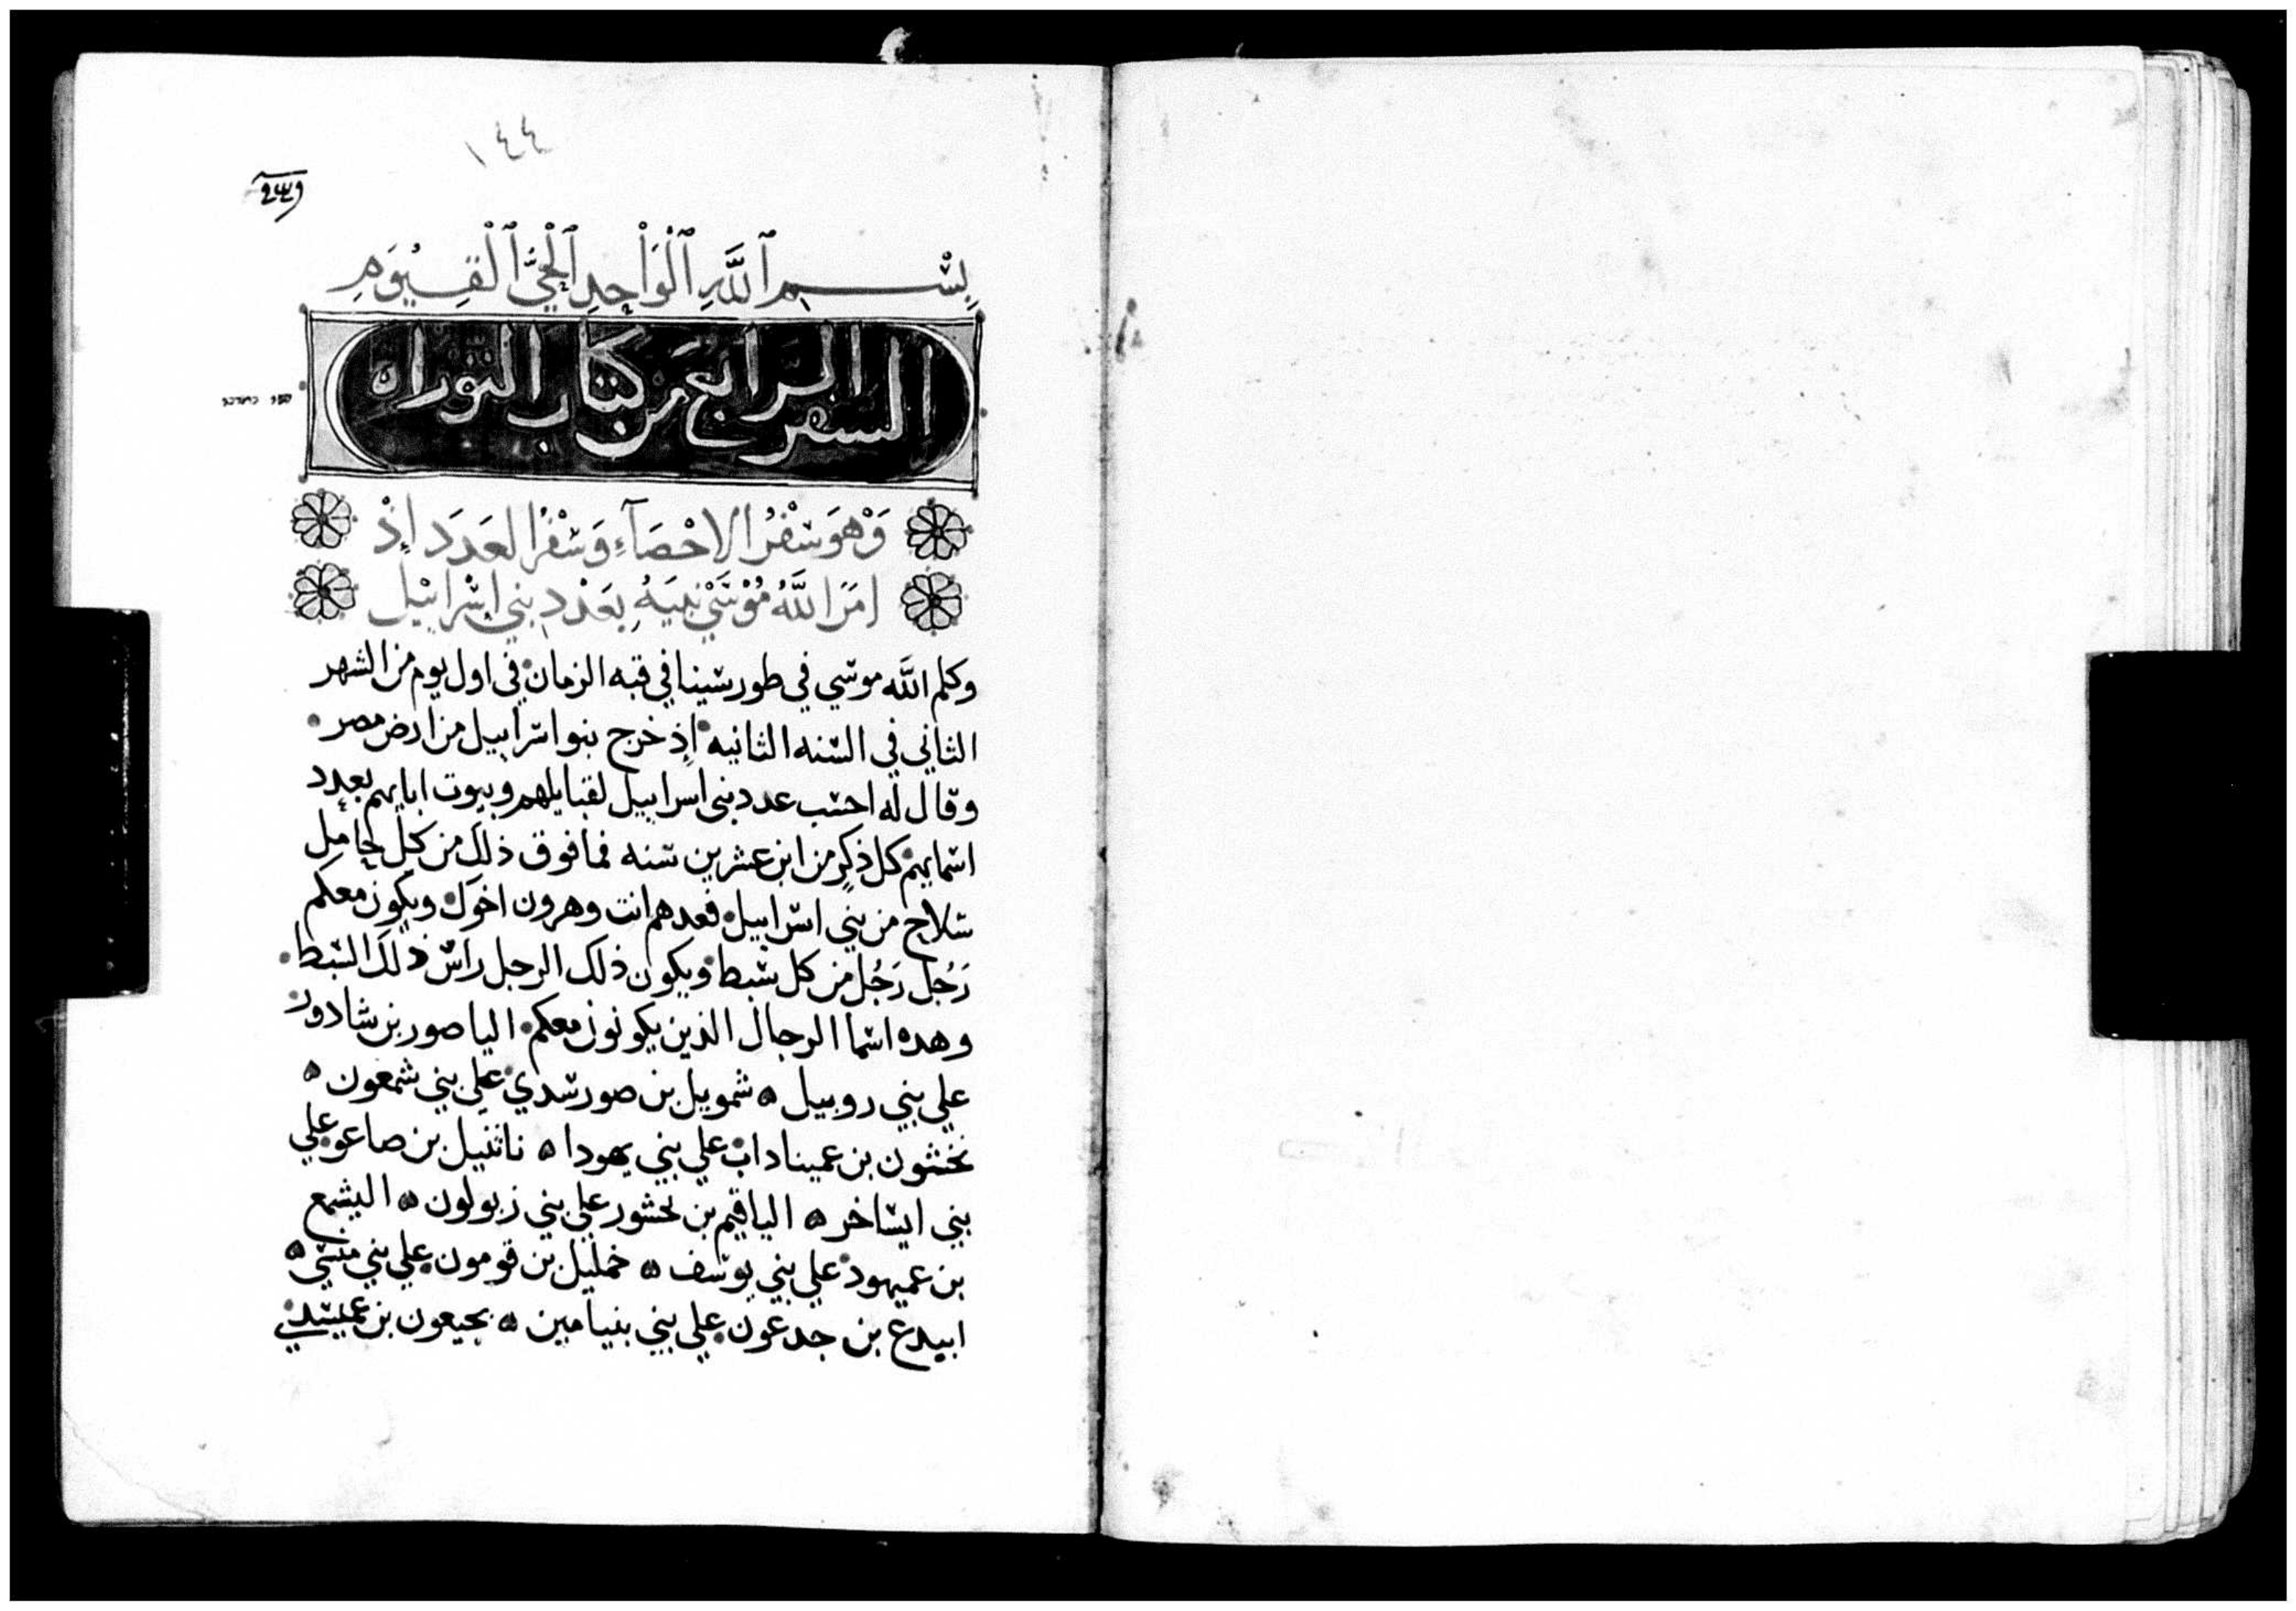 ١٤٤
بِسْمِ ٱللَّهِ ٱلْوَاْحِدِ ٱلْحَيِّ ٱلْقَيُوْمِ
السفر الرابع من كتاب التوراه
وَهْوَ سْفْرُ الاحْصَآءِ وَسْفْرُ العَدَدِ اِذْ
امَرَ اللَّهُ مُوْسَيْ نبيَهُ بعَدْدِ بني اسْراييل
وكلم اللَّه موسي في طور سينا في قبه الزمان في اول يوم من الشهر
الثاني في السنه الثانيه اِذ خرج بنوا سراييل من ارض مصر
وقال له احسب عدد بني اسراييل لقبايلهم وبيوت ابايهم بعدد
اسمايهم كل ذكر من ابن عشرين سنه فما فوق ذلك من كل حامل
سلاح من بني اسراييل فعدهم انت وهرون اخوك ويكون معكم
رَجُل رَجُل من كل سبط ويكون ذلك الرجل راس ذلك السبط
وهده اسما الرجال الذين يكونون معكم الياصور بن شادور
علي بني روبيل ه شمويل بن صورشدي علي بني شمعون ه
نخشون بن عميناداب علي بني يهودا ه ناثنيل بن صاعو علي
بني ايساخر ه الياقيم بن بحشور علي بني زبولون ه اليشمع
بن عميهود علي بني يوسف ه خمليل بن قومون علي بني منسي ه
ابيدع بن جدعون علي بني بنيامين ه بحيعون بن عميشدي